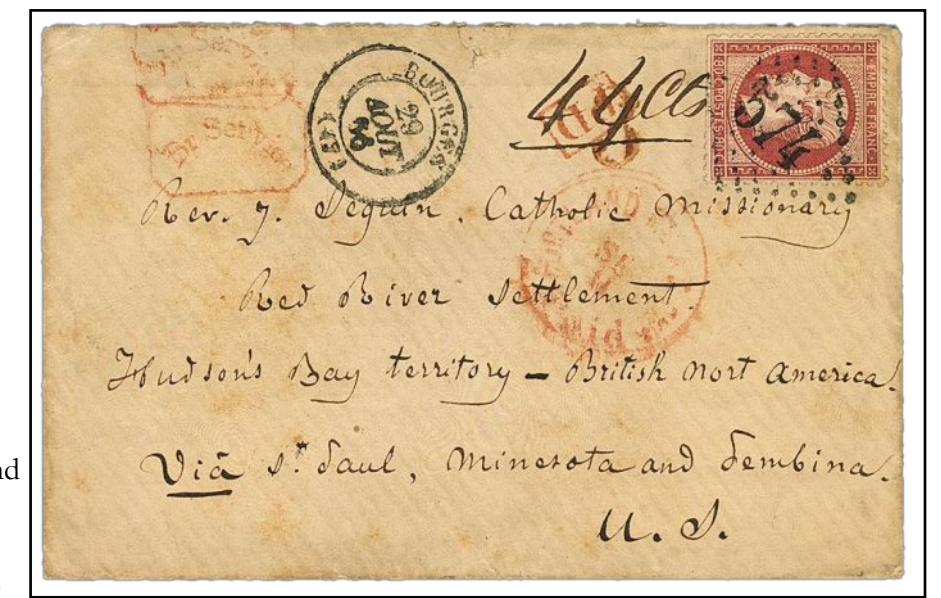 Br Service
Br Service
BOURGES
29
AOUT
66
(17)
44 cts
PD
EMPIRE FRANC
POSTES
Rev. J. Seguin. Catholic Missionary
Red River Settlement.
Hudson's Bay territory – British nort america.
Viâ St. Paul, Minesota and Pembina.
U. S.
Paid
nd